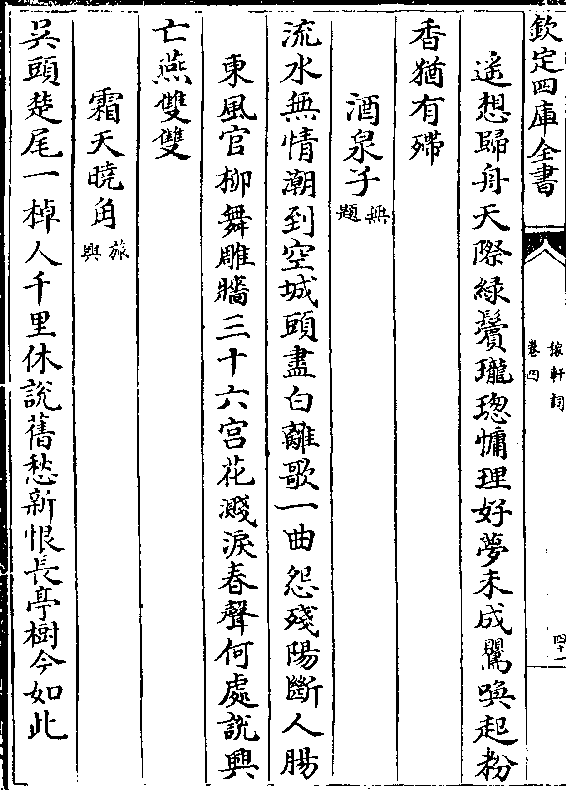 欽定四庫全書
稼軒詞
卷四
四十一
遙想歸舟天際綠鬢瓏璁慵理好夢未成鶯喚起粉
香猶有殢
酒泉子
無
題
流水無情潮到空城頭盡白離歌一曲怨殘陽斷人腸
東風官柳舞雕牆三十六宮花濺淚春聲何處說興
亡燕雙雙
霜天曉角
旅
興
吳頭楚尾一棹人千里休說舊愁新恨長亭樹今如此